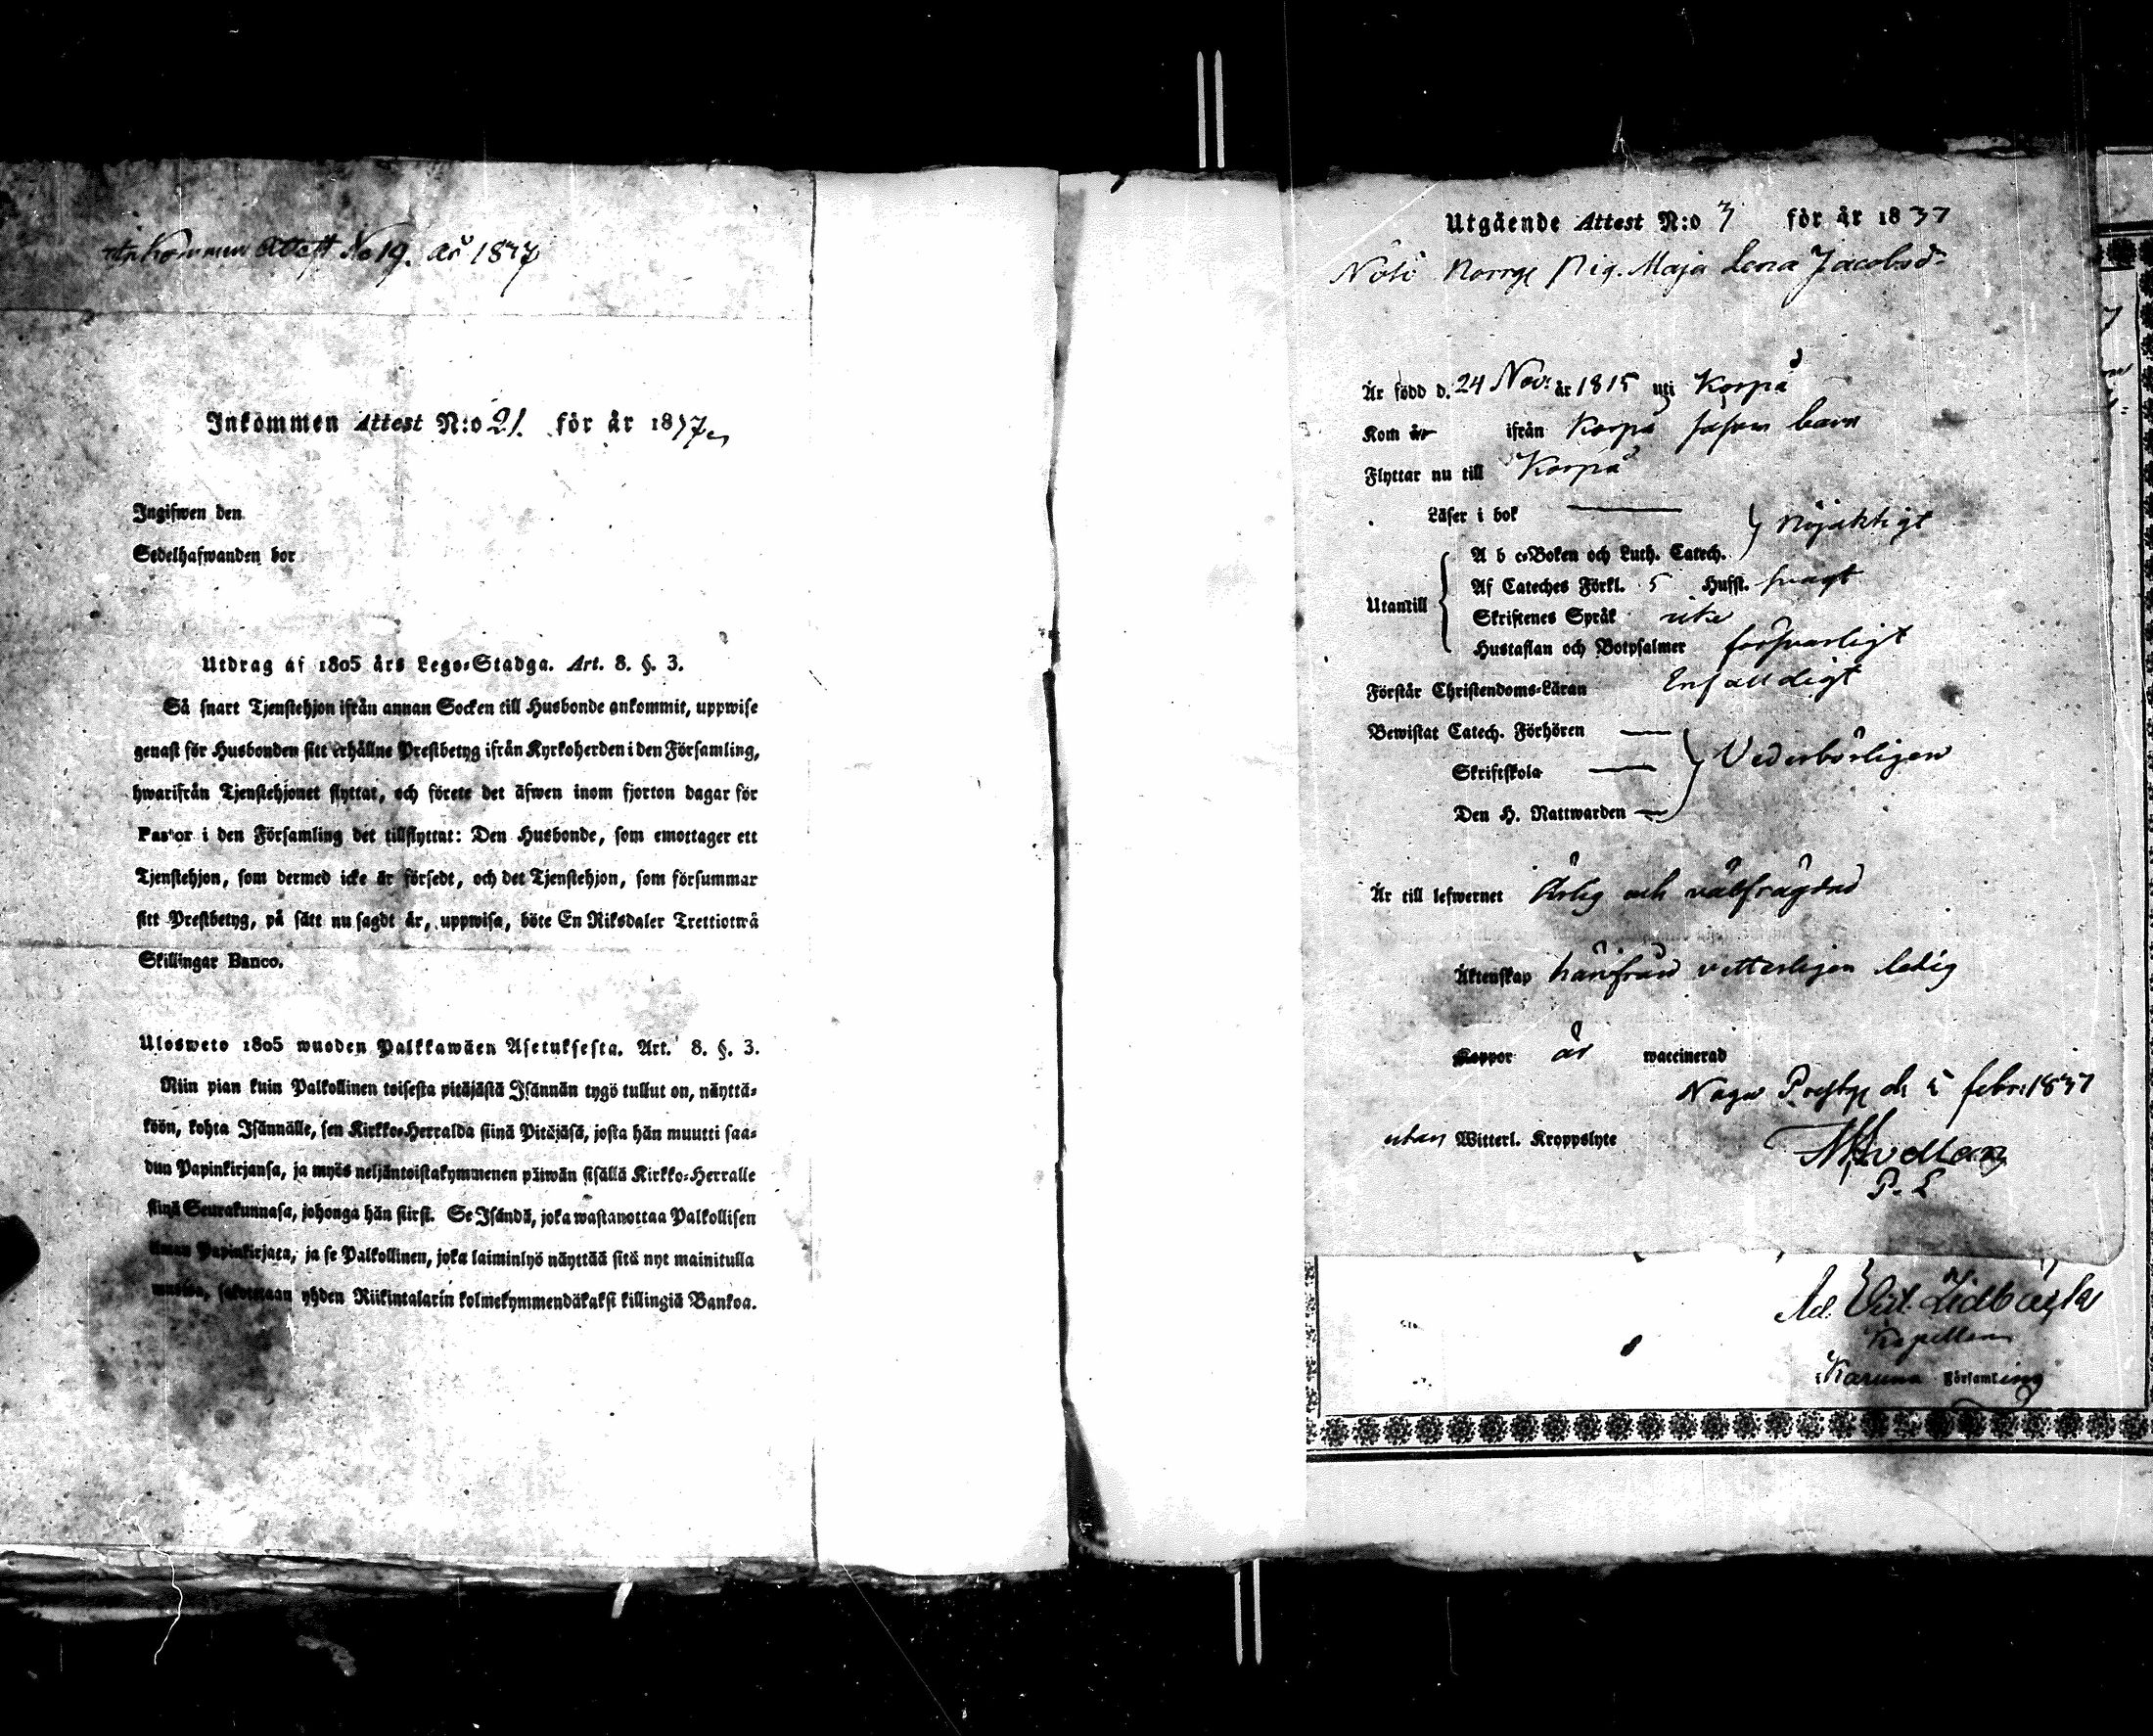 Inkommen Attest No 19. år 1837
Inkommen Attest N:o 21. för år 1837
Ingifwen den
Sedelhafwanden bor
Utdrag af 1805 års Lego-Stadga. Art. 8. §. 3.
Så snart Tjenstehjon ifrån annan Socken till Husbonde ankommit, uppwise
genast för Husbonden sitt erhållne Prestbetyg ifrån Kyrkoherden i den Församling,
hwarifrån Tjenstehjonet flyttat, och förete det äfwen inom fjorton dagar för
Pastor i den Församling det tillflyttat: Den Husbonde, som emottager ett
Tjenstehjon, som dermed icke är försedt, och det Tjenstehjon, som försummar
sitt Prestbetyg, på sätt nu sagdt är, uppwisa, böte En Riksdaler Trettiotwå
Skillingar Banco.
Ulosweto 1805 wuoden Palkkawäen Asetuksesta. Art. 8. §. 3.
Niin pian kuin Palkollinen toisesta pitäjästä Isännän tygö tullut on, näyttä-
köön, kohta Isännälle, sen Kirkko-Herralda siinä Pitäjäsä, josta hän muutti saa-
dun Papinkirjansa, ja myös neljäntoistakymmenen päiwän sisällä Kirkko-Herralle
siinä Seurakunnasa, johonga hän siirsi. Se Isändä, joka wastanottaa Palkollisen
ilman Papinkirjata, ja se Palkollinen, joka laiminlyö näyttää sitä nyt mainitulla
yhden Riikintalarin kolmekymmendäkaksi killingiä Bankoa.
Utgående Attest N:o 3 för år 1837
Nötö Norrg Pig. Maja Lena Jacobsd:
Är född d. 24 Nov: år 1815 uti Korpo
Kom år ifrån Korpo såsom barn
Flyttar nu till Korpo
Läser i bok
nöjaktigt
A b c-Boken och Luth. Catech.
Af Cateches Förkl. 5 Hufst. svagt
Utantill
Skriftenes Språk
Hustaflan och Botpsalmer försvarligt
Förstår Christendoms-Läran Enfaldigt
Bewistat Catech. Förhören
Vederbörligen
Skriftskola
Den H. Nattwarden
Är till lefwernet Ärlig och välfrägdad
Äktenskap härifrån vetterligen ledig
Koppor är waccinerad
Nagu Prestg d. 5 febr: 1837
utan Witterl. Kroppslyte
P. L
Kapellan
Karuna Församling